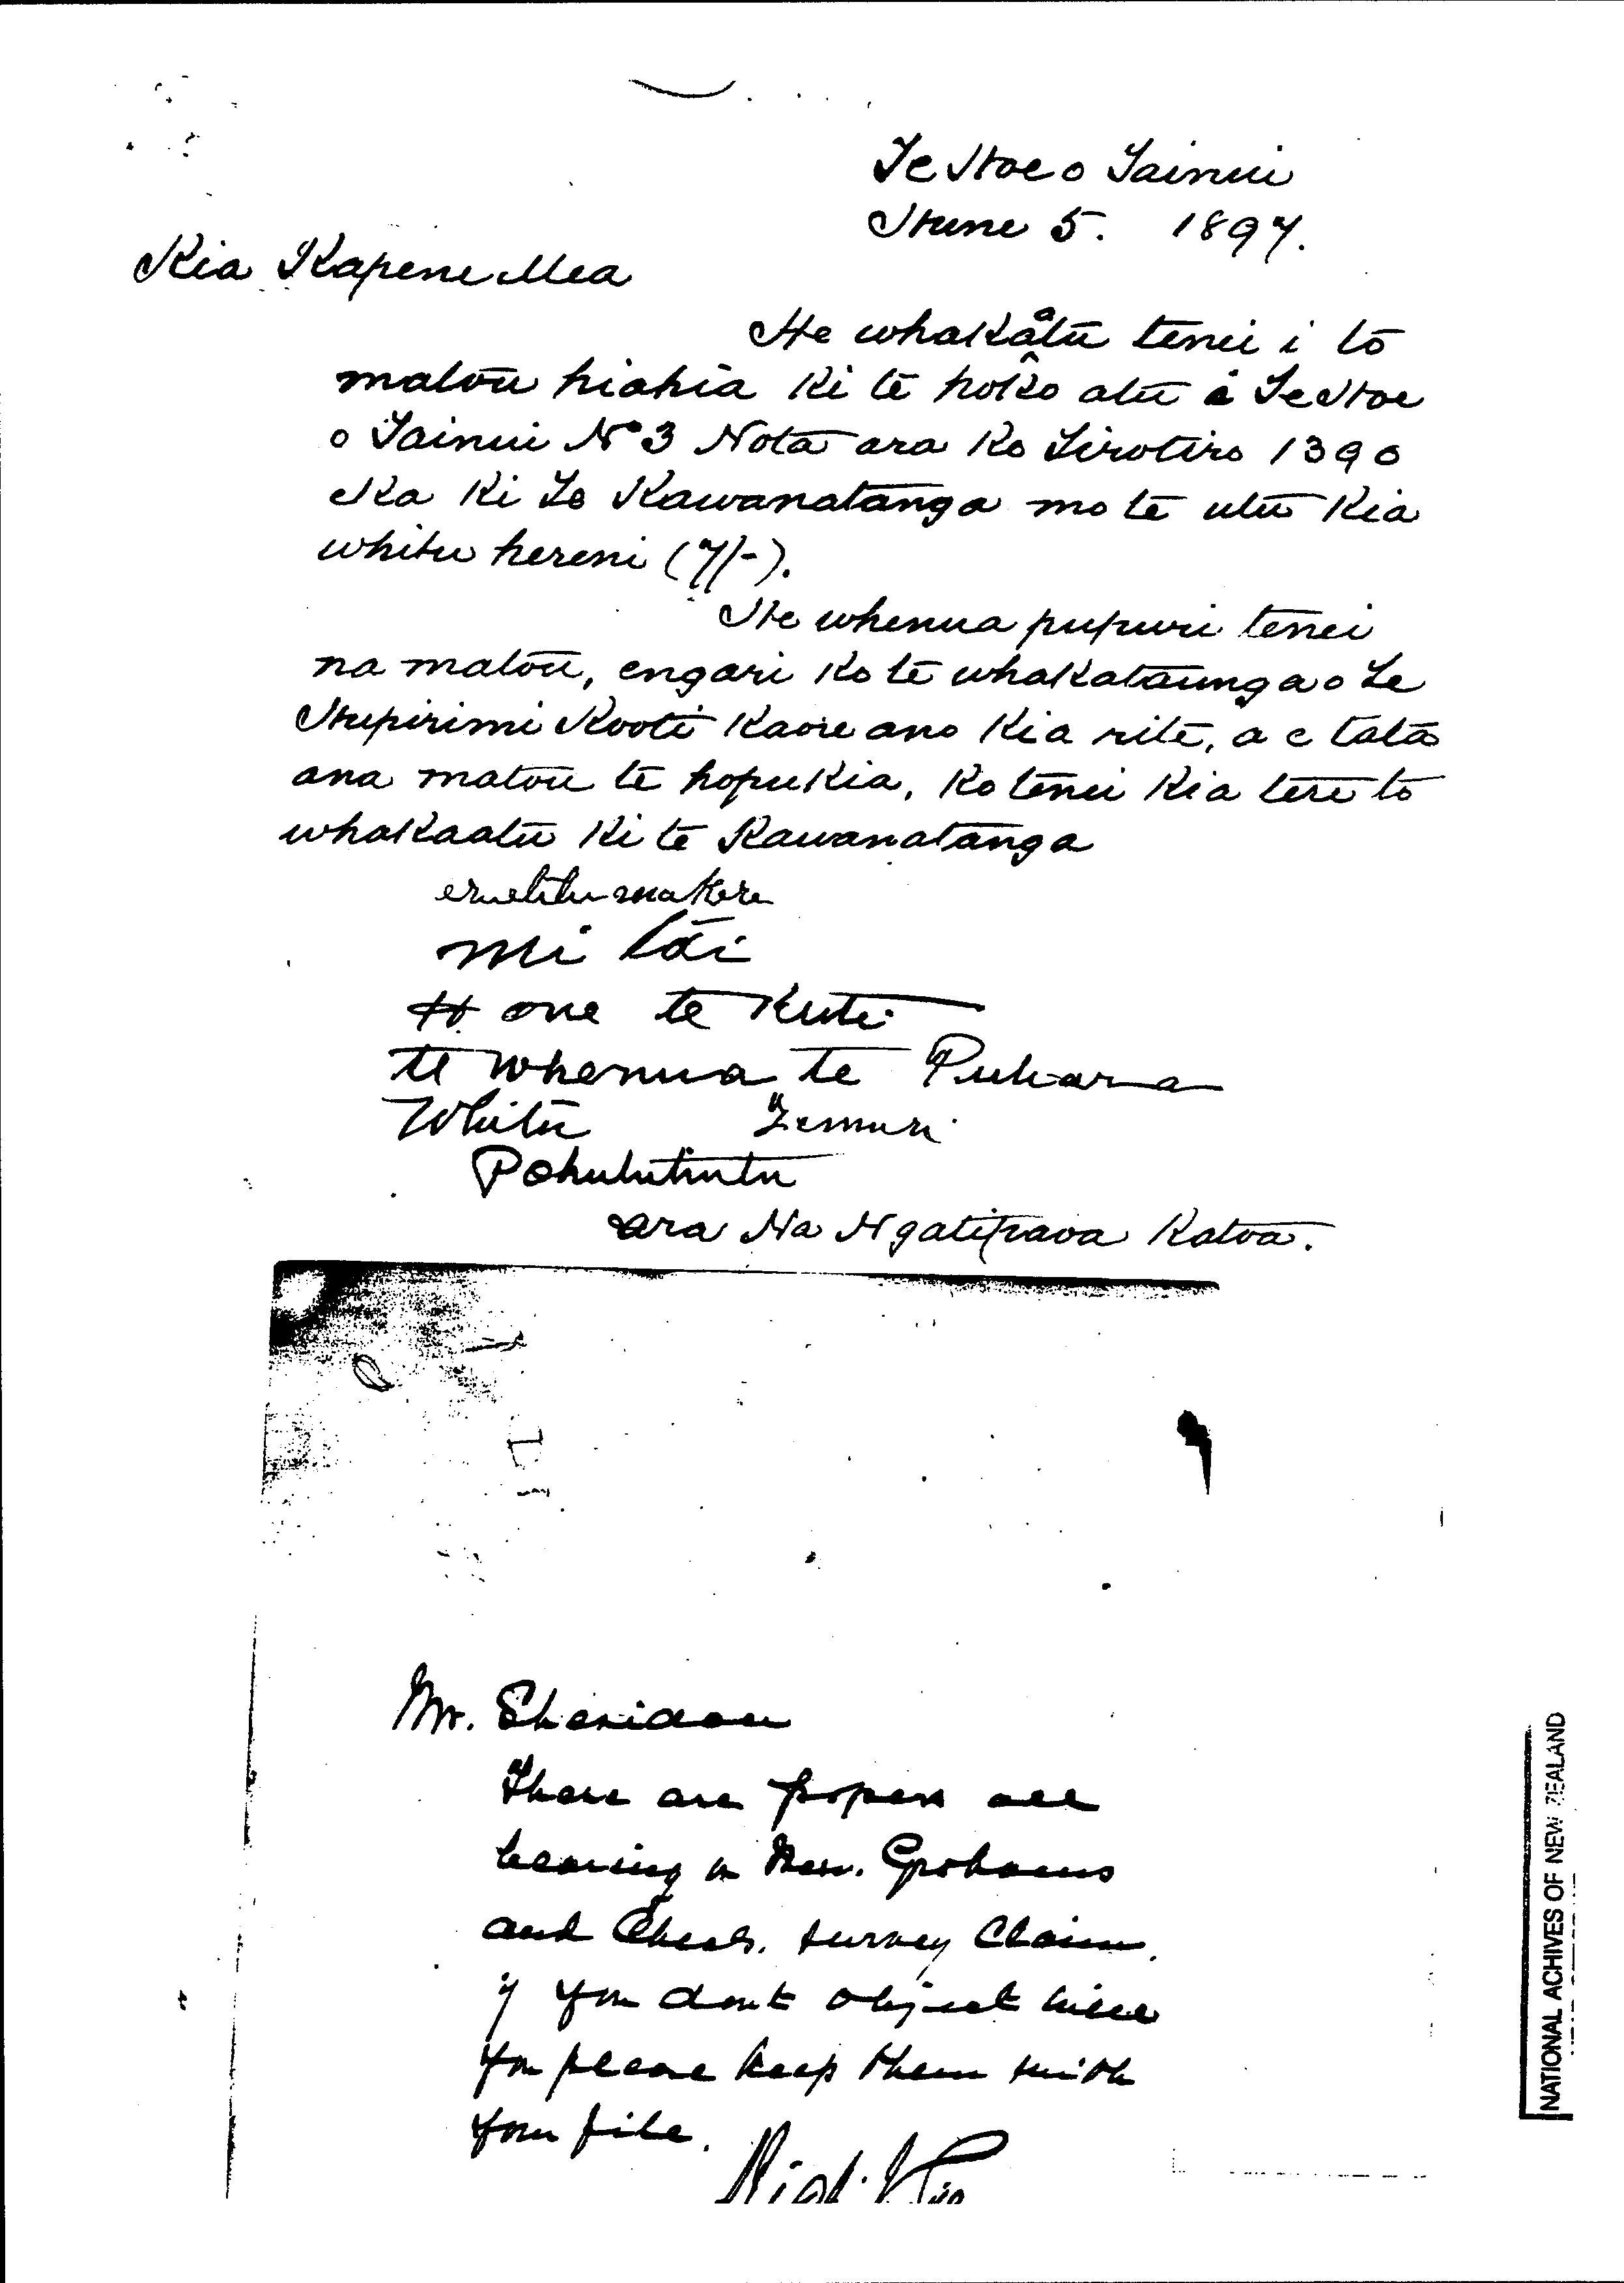 Te Hoe o Tainui
Hune 5. 1897.
Kia Kapene Mea
He whakaatu tenei i to
matou hiahia ki te hoko atu i Te Hoe
o Tainui No 3 Nota ara ko Tirotiro 1390
eka ki Te Kawanatanga mo te utu kia
whitu hereni (7/-).
He whenua pupuri tenei
na matou, engari ko te whakataunga o Te
Hupirimi Kooti kaore ano kia rite, a e tata
ana matou te hopukia, ko tenei kia tere to
whakaatu ki te Kawanatanga
mi tai
Hone te Kuti
te whenua te Puhara
Whitu Temuri
Pohutuhutu
ara Na Ngatipaoa Katoa.
Mr. Sheridan
There are papers all
bearing on Messrs.
and Cheal's. survey Claim.
if you dont object will
you please keep them with
your file.
NATIONAL ACHIVES OF NEW ZEALAND